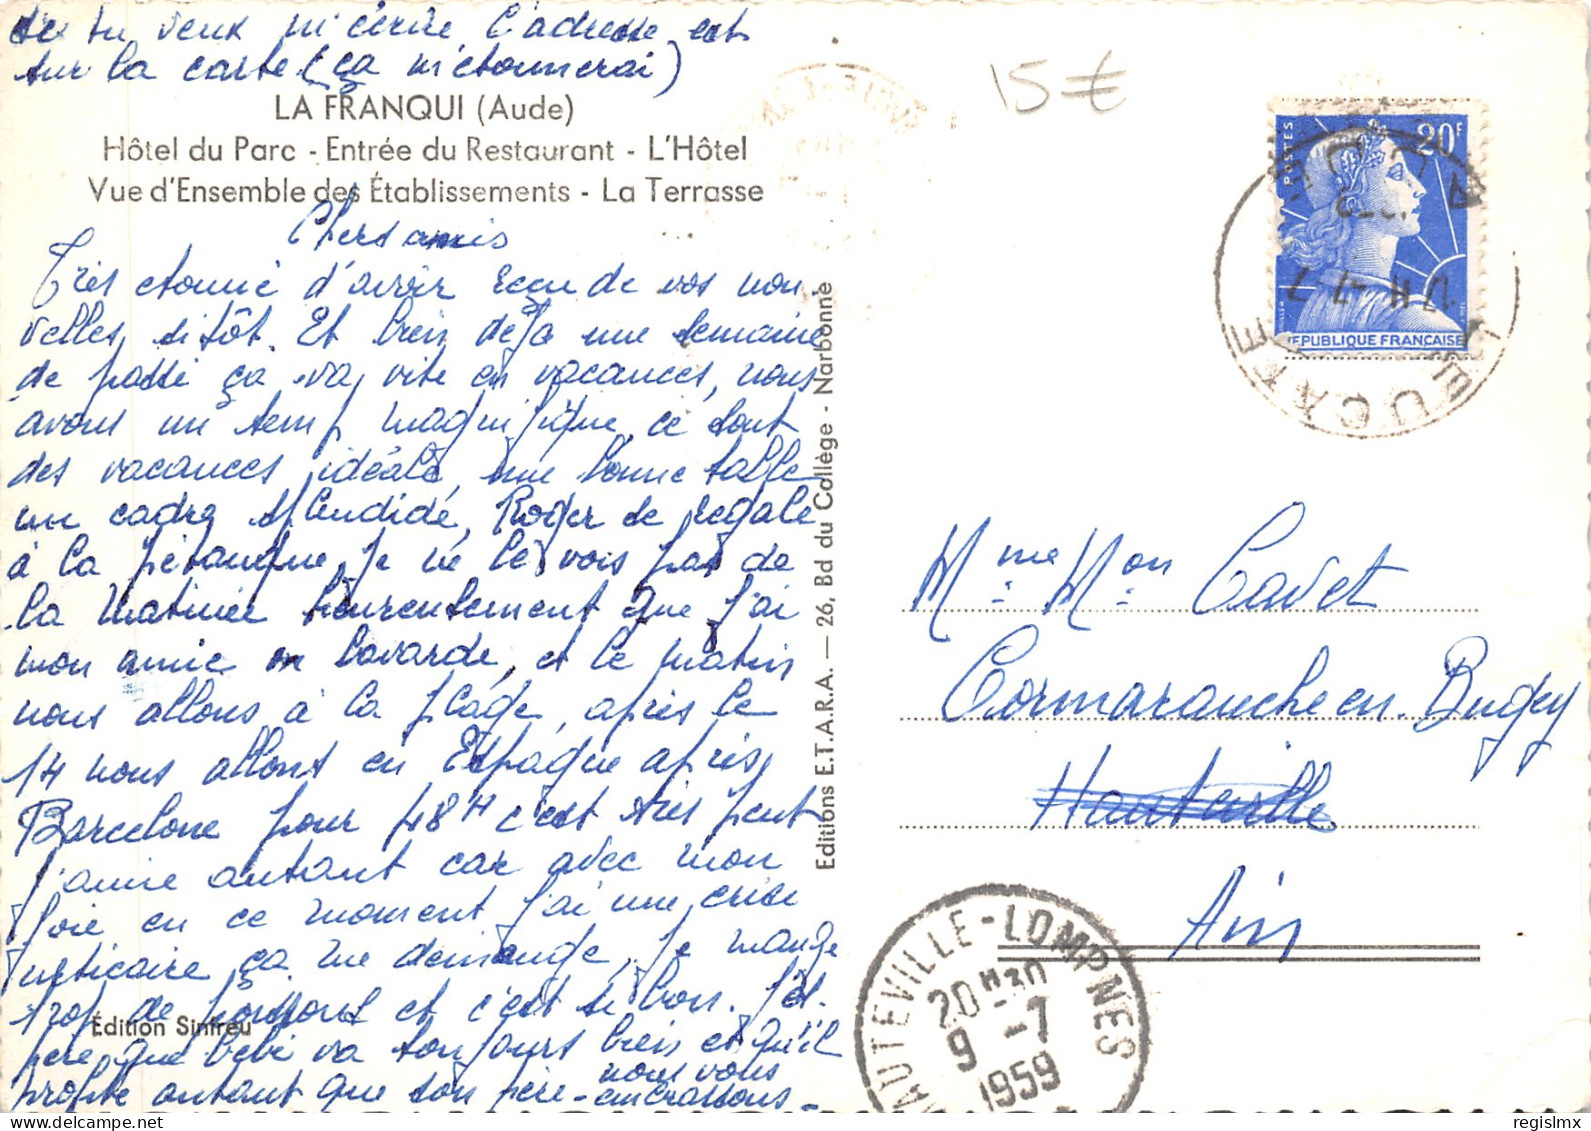 si tu veux m'écrire l'adresse est
sur la carte (ça m'étonnerai)
15 €
LA FRANQUI (Aude)
Hôtel du Parc - Entrée du Restaurant - L'Hôtel
Vue d'Ensemble des Établissements - La Terrasse
Chers amis
Très étonné d'avoir reçu de vos nou
velles, sitôt. Et bien déjà une semaine
de passé ça va vite en vacances, nous
avons un temp magnifique, ce sont
des vacances idéale, une bonne table
un cadre splendide, Roger se régale
à la pétanque, je ne le vois pas de
la matinée heureusement que j'ai
mon amie bavarde, et le matin
nous allons à la plage, après le
14 nous allons en Espagne après
Barcelone pour 48H c'est très peut
j'aime autant car avec mon
foie en ce moment j'ai une crise
urticaire ça me démange, je mange
trop de poissons et c'est si bon. J'es-
père que bébé va toujours bien et qu'il
profite autant que son père - nous vous
embrassons -
Édition Sinfreu
Editions E.T.A.R.A. — 26, Bd du Collège - Narbonne
POSTES
20F
MULLER
REPUBLIQUE FRANÇAISE
LEUCATE
Mme Mon Cavet
Cormaranche en Bugey
Hauteville
Ain
HAUTEVILLE-LOMPNES
20H30
9 -7
1959
regislmx